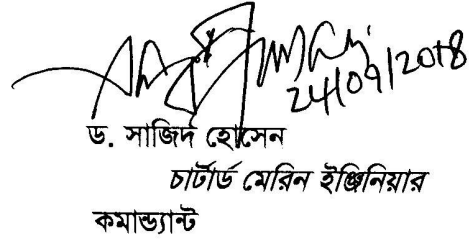 24/09/2018
ড. সাজিদ হোসেন
চার্টার্ড মেরিন ইঞ্জিনিয়ার
কমান্ড্যান্ট